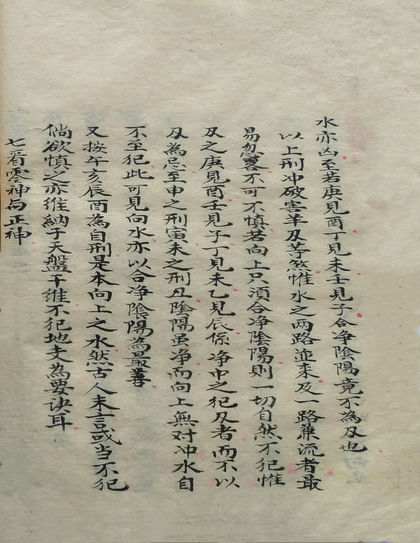 水亦凶至若庚見酉丁見未壬見子合净陰陽竟不為及也
以上刑冲破害羊及等煞惟水之两路並来及一路兼流者最
易忽畧不可不慎若向上只須合净陰陽則一切自然不犯惟
及之庚見酉壬見子丁見未乙見辰係净中之犯及者而不以
及為忌至申之刑寅未之刑丑陰陽虽净而向上無对冲水自
不至犯此可見向水亦以合净陰陽為最善
又按午亥辰酉為自刑是本向上之水然古人未言或当不犯
倘欲慎之亦维納子天盤干维不犯地支為要诀耳
七看零神与正神